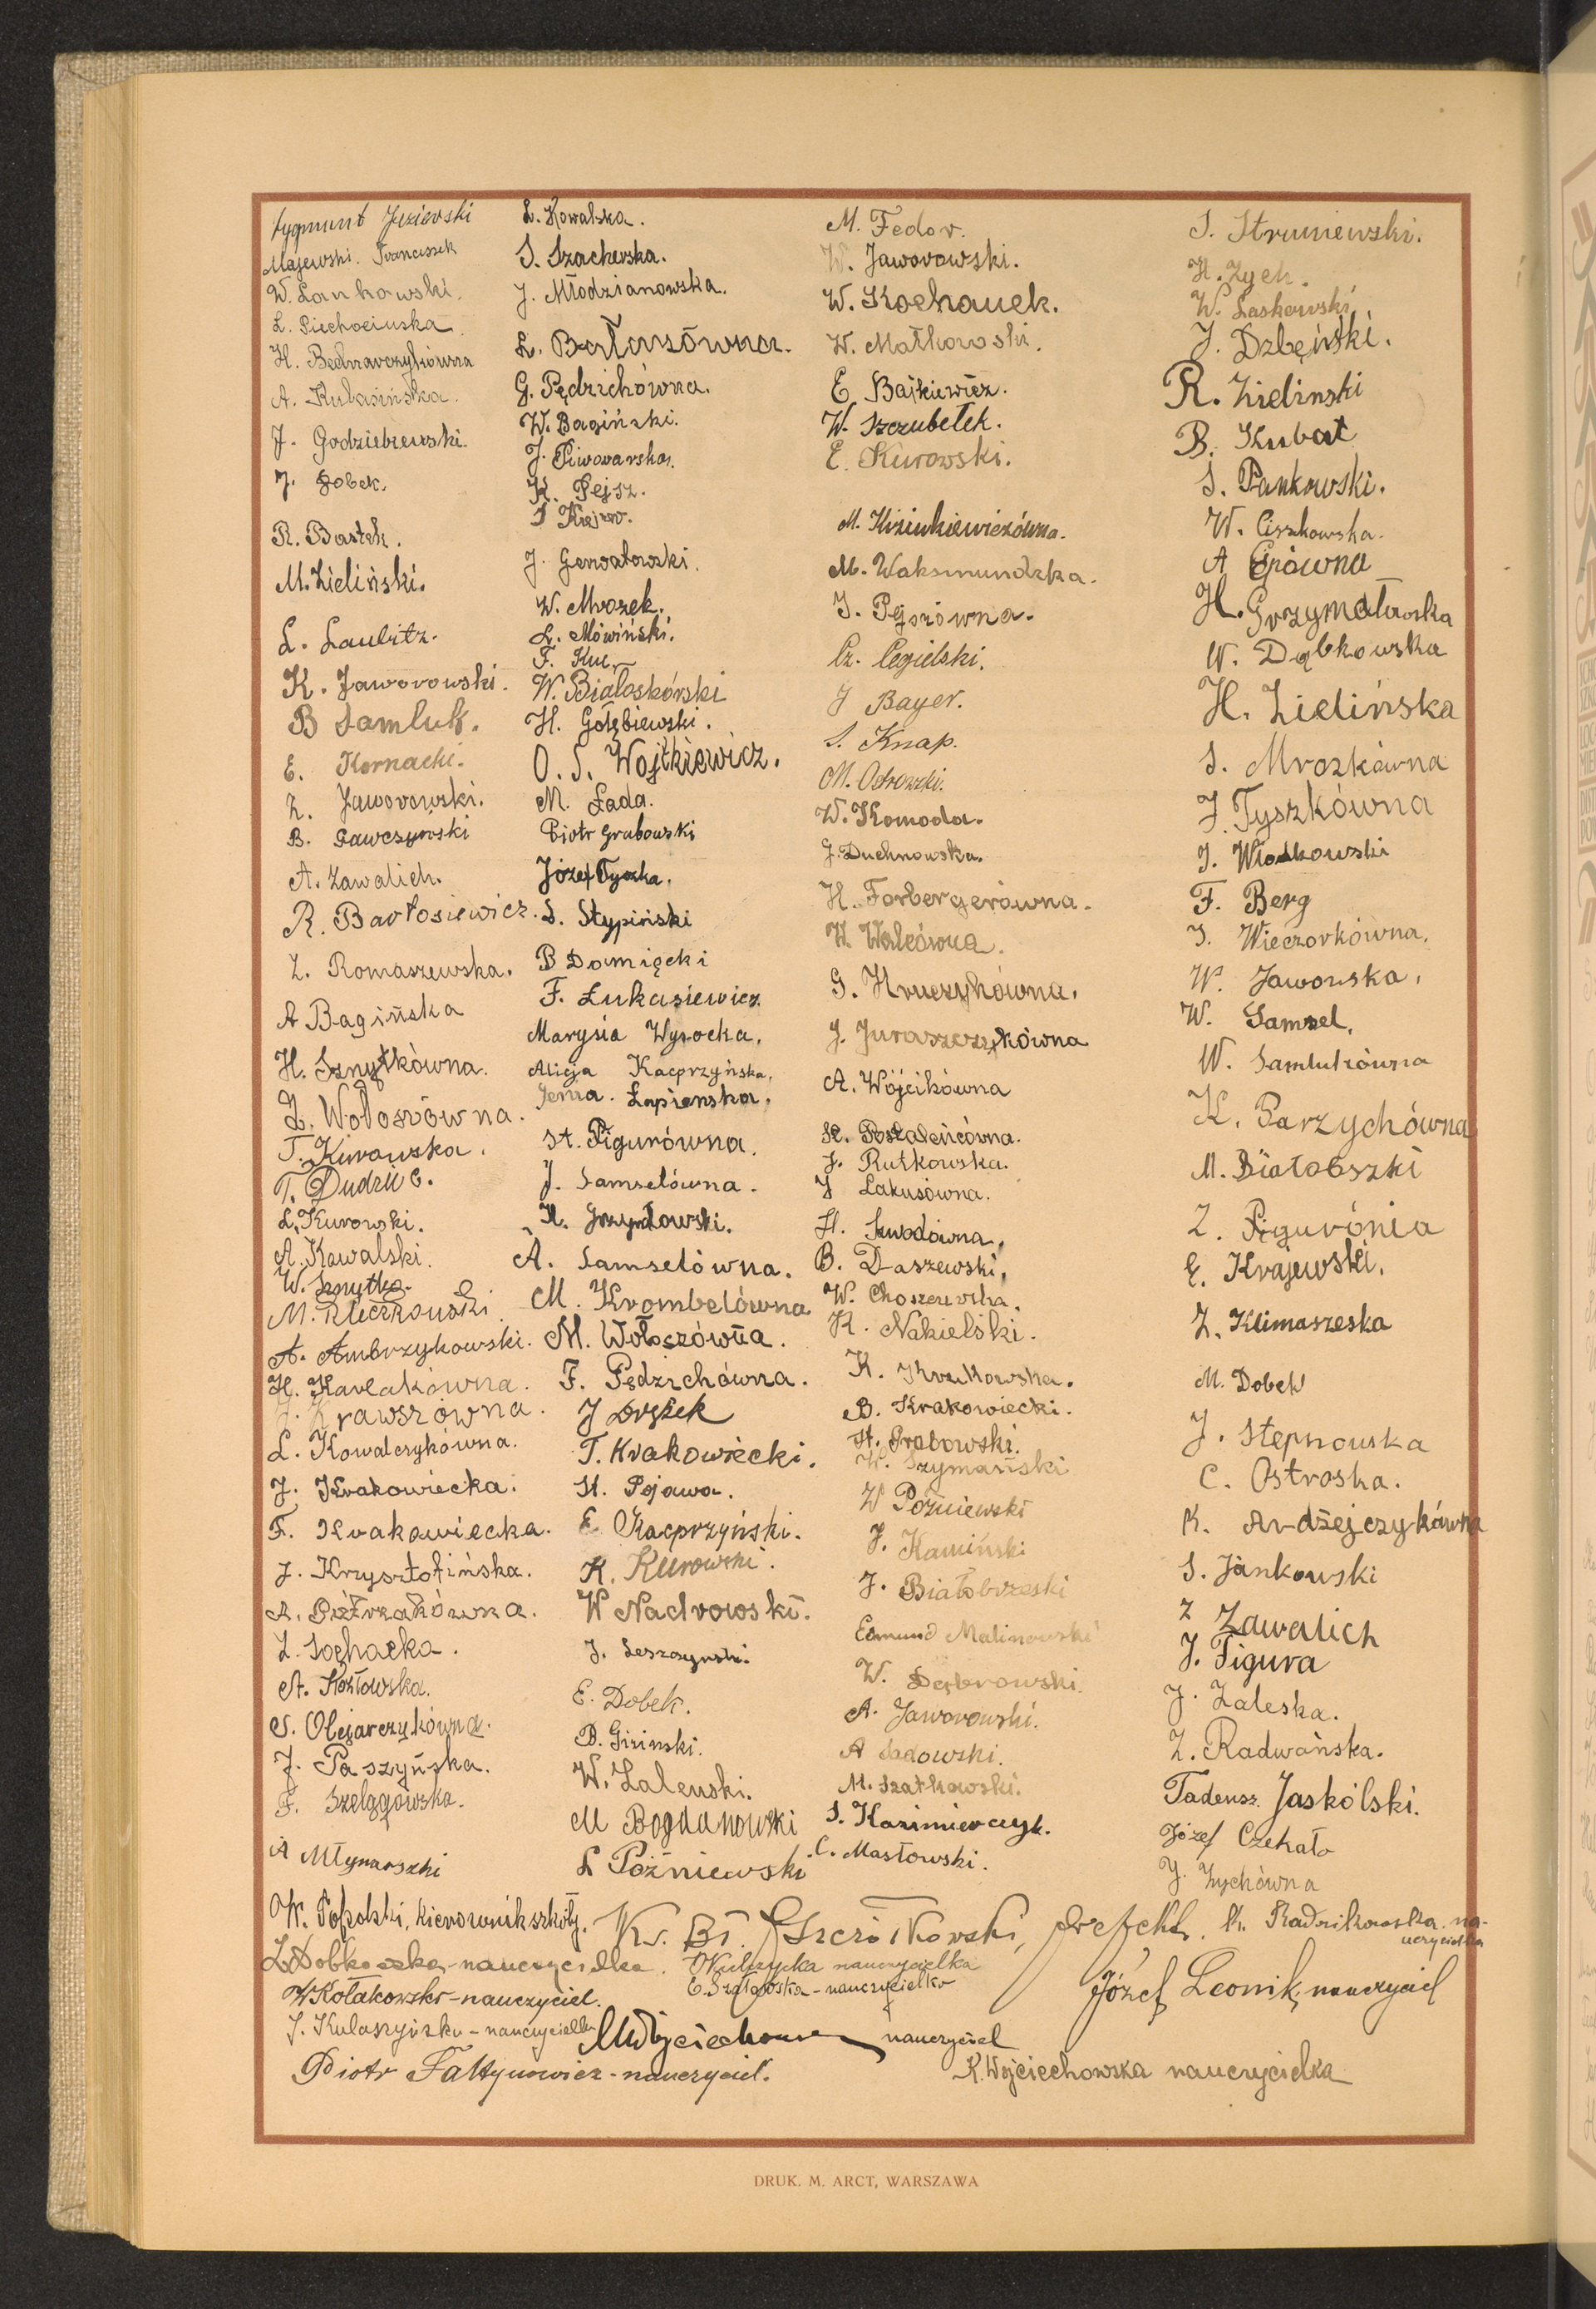 Zygmunt Jeziorski
Majewski. Franciszek
W. Lankowski.
L. Piechociuska
H. Bednarczykówna
A. Kubasińska.
J. Godziebiewski.
J. Sobek.
R. Bastek.
M. Zieliński.
L. Laubitz.
K. Jaworowski.
B Samluk.
E. Kornacki.
Z. Jaworowski.
B. Sawczyński
A. Zawalich.
R. Bartosiewicz.
Z. Romaszewska.
A Bagińska
H. Sznytkówna.
Z. Wołosówna.
T. Kurowska.
T. Dudziec.
L. Kurowski.
A. Kowalski.
W. Sznytka.
M. Kleczkowski.
A. Ambrzykowski.
H. Karlakówna.
J. Krawszówna.
L. Kowalczykówna.
J. Krakowiecka.
F. Krakowiecka.
J. Krysztofińska.
A. Pietrzakówna.
Z. Sochacka.
A. Kozłowska.
S. Olejarczykówna.
J. Paszyńska.
F. Szelągowska.
A Młynarski
L. Kowalska.
S. Szacherska.
J. Młodzianowska.
L. Bałasówna.
G. Pędzichówna.
W. Bagiński.
J. Piwowarska.
K. Pejsz.
S Krejzer.
J. Gerwatowski.
W. Mrozek.
L. Mówiński.
F. Kuc.
W. Białoskórski
H. Gołębiewski.
O. S. Wojtkiewicz.
M. Łada.
Piotr Grabowski
Józef Tyszka.
S. Stypiński
B Domięcki
F. Łukasiewicz
Marysia Wysocka.
Alicja Kacprzyńska.
Genia. Łapieńska.
St. Figurówna.
J. Samselówna.
H. Grzymłowski.
A. Samselówna.
M. Krombelówna
M. Wołoszówna.
F. Pędzichówna.
J Drężek
T. Krakowiecki.
H. Pojawa.
E Kacprzyński.
K. Kurowski.
W Nadrowski.
J. Leszczyński.
E. Dobek.
B. Giziński.
W. Zalewski.
M Bogdanowski
L Późniewski
M. Fedor.
W. Jaworowski.
W. Kochanek.
W. Małkowski.
E Bajkiewicz.
W. Szczubełek.
E. Kurowski.
M. Kiziukiewiczówna.
M. Waksmundzka.
J. Pęzówna.
Cz. Cegielski.
J Bayer.
S. Knap.
M. Ostrowski.
W. Komoda.
J. Duchnowska.
H. Forbergerówna.
W. Walcówna.
G. Kruczykówna.
J. Juraszczykówna
A. Wójcikówna
R. Poszaleńcówna.
J. Rutkowska.
J Lakusówna.
H. Szwedówna.
B. Daszewski.
W. Choszczewska.
K. Nakielski.
K. Krukowska.
B. Krakowiecki.
H. Grabowski.
W. Szymański
W Późniewski
J. Kamiński
J. Białobrzeski
Edmund Malinowski
W. Dąbrowski.
A. Jaworowski.
A Sadowski.
M. Szatkowski.
S. Kazimierczyk.
C. Masłowski.
S. Struniewski.
H. Zych.
W. Laskowski
J. Dzbeński.
R. Zielinski
B. Kubat
S. Pankowski.
W. Ciszkowska.
A Gpówna
H. Grzymałowska
W. Dąbkowska
H. Zielińska
S. Mrozkówna
J. Tyszkówna
J. Włodkowski
F. Berg
J. Wieczorkówna.
W. Jaworska.
W. Samsel.
W. Samlukówna
K. Parzychówna
M. Białobszki
Z. Figurónia
E. Krajewski.
Z. Klimaszeska
M. Dobek
J. Stepnowska
C. Ostroska.
K. Ardżejczykówna
S. Jankowski
Z Zawalich
J. Figura
J. Zaleska.
Z. Radwańska.
Tadeusz Jaskólski.
Józef Czekało
J. Zychówna
W. Popolski, kierownik szkoły. Ks. Br. Szczotkowski, prefekt. K. Radzikowska, nauczycielka
Z. Dobkowska - nauczycielka. O Kulczycka nauczycielka
W Kołakowski - nauczyciel. E. Szałajoska - nauczycielka Józef Leonik, nauczyciel
J. Kulaszyńska - nauczycielka M Wojciechowski nauczyciel
Piotr Fałtynowicz - nauczyciel. K. Wojciechowska nauczycielka
DRUK. M. ARCT, WARSZAWA